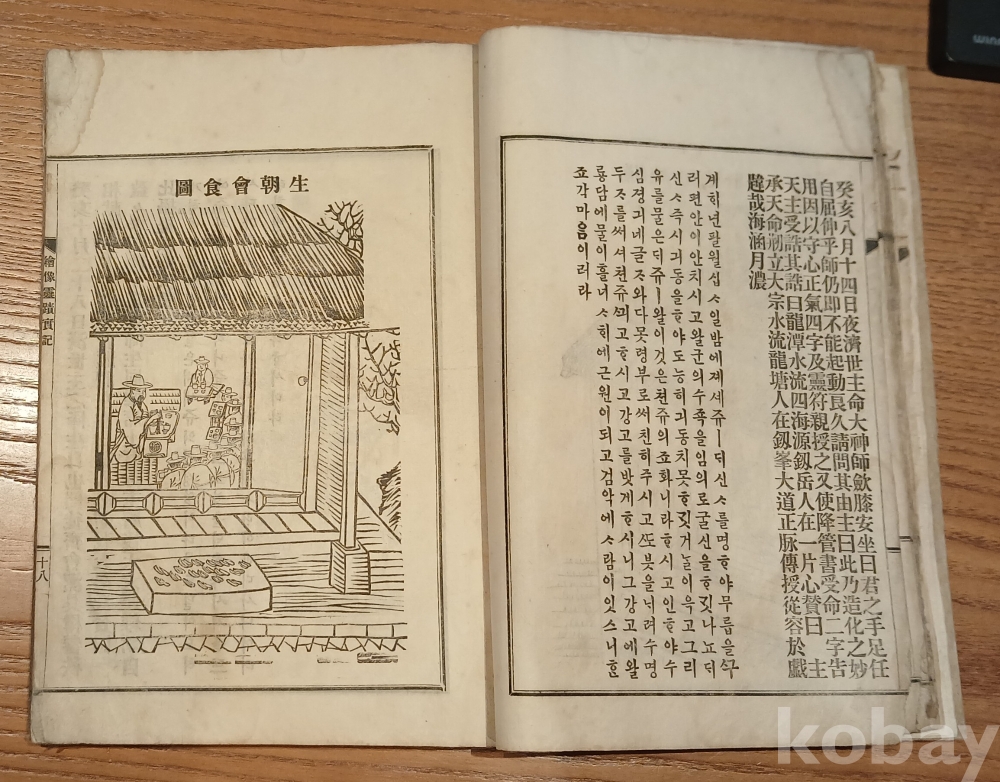 癸亥八月十四日夜濟世主命大神師斂膝安坐曰君之手足任
自屈伸乎師仍卽不能起動良久請問其由主曰此乃造化之妙
用因以守心正氣四字及靈符親授之又使降管書受命二字告
天主受誥其誥曰龍潭水流四海源釼岳人在一片心贊曰 主
承天命刱立大宗水流龍塘人在釼峯大道正脉傳授從容於戱
韙哉海涵月濃
계ᄒᆡ년팔월십ᄉᆞ일밤에졔세쥬ㅣᄃᆡ신ᄉᆞ를명ᄒᆞ야무릅을ᄭᅮ
러편안이안치시고왈군의수족을임의로굴신을ᄒᆞ깃나뇨ᄃᆡ
신ᄉᆞ즉시긔동을ᄒᆞ야도능히긔동치못ᄒᆞ깃거늘이윽고그리
유를물은ᄃᆡ쥬ㅣ왈이것은텬쥬의죠화니라ᄒᆞ시고인ᄒᆞ야수
심졍긔네글ᄌᆞ와다못령부로써친히주시고ᄯᅩ붓을ᄂᆡ려수명
두ᄌᆞ를써셔텬쥬ᄭᅴ고ᄒᆞ시고강고를밧게ᄒᆞ시니그강고에왈
룡담에물이흘너ᄉᆞ히에근원이되고검악에ᄉᆞ람이잇스니ᄒᆞᆫ
죠각마음이러라
生朝會食圖
繪像靈蹟實記
十八
kobay